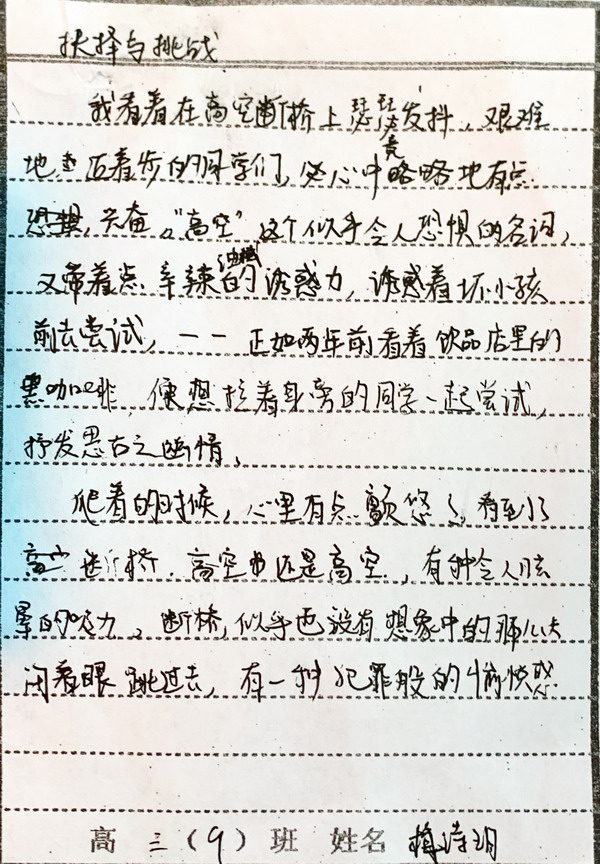 抉择与挑战
我看着在高空断桥上瑟瑟发抖，艰难
地迈着步的同学们，心中竟略略地有点
恐惧，兴奋。“高空”这个似乎令人恐惧的名词，
又带着点辛辣的诱惑力，诱惑着坏小孩
前去尝试，——正如两年前看着饮品店里的
黑咖啡，便想拉着身旁的同学一起尝试，
抒发思古之幽情。
爬着的时候，心里有点颤悠，看到了
断桥．高空也还是高空，有种令人眩
晕的吸力。断桥，似乎也没有想象中的那么
闭着眼跳过去，有一种犯罪般的快感
高三（9）班 姓名 梅诗玥